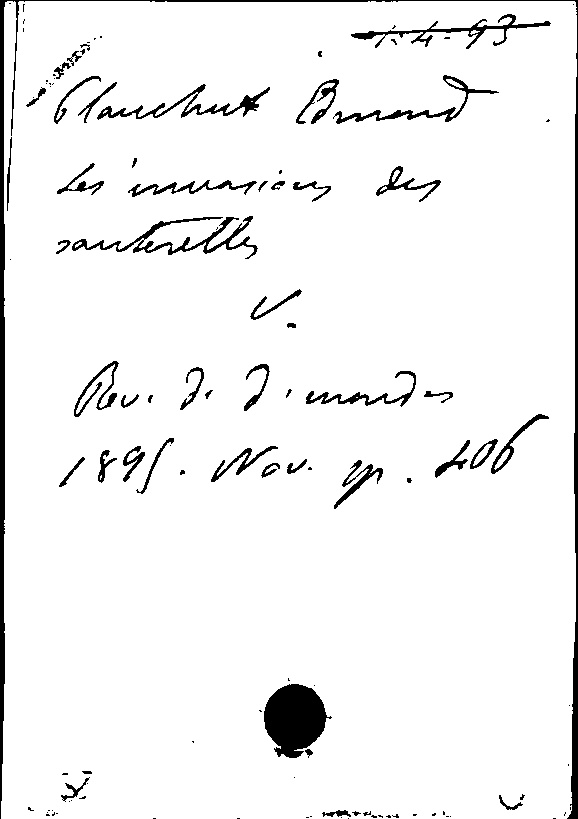 1-4-93
Plauchut Edmond
Les invasions des
sauterelles
V.
Rev. d. d. mondes
1895. Nov. p. 406